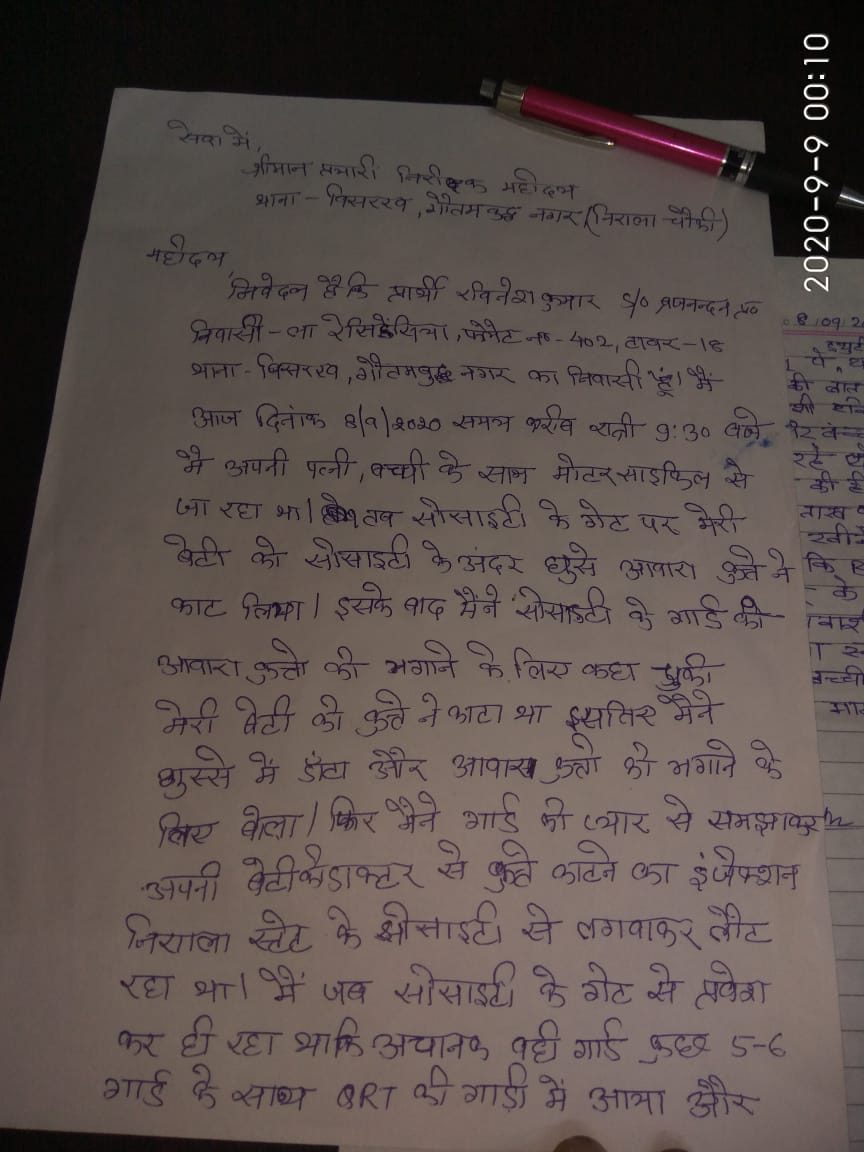 सेवा में,
श्रीमान प्रभारी निरीक्षक महोदय
थाना - बिसरख, गौतमबुद्ध नगर (निराला चौकी)
महोदय,
निवेदन है कि प्रार्थी रविनेश कुमार S/o ब्रजनन्दन प्र०
निवासी - ला रेसिडेंसिया, फ्लैट न० - 402, टावर - 18
थाना - बिसरख, गौतमबुद्ध नगर का निवासी हूं। मैं
आज दिनांक 8/9/2020 समय करीब रात्री 9:30 बजे
मै अपनी पत्नी, बच्ची के साथ मोटरसाइकिल से
जा रहा था। तब सोसाइटी के गेट पर मेरी
बेटी को सोसाइटी के अंदर घुसे आवारा कुत्ते ने
काट लिया। इसके बाद मैंने सोसाइटी के गार्ड को
आवारा कुत्तो को भगाने के लिए कहा चुकी
मेरी बेटी को कुत्ते ने काटा था इसलिए मैंने
गुस्से में डांटा और आवारा कुत्तो को भगाने के
लिए बोला। फिर मैंने गार्ड को प्यार से समझाकर
अपनी बेटी को डाक्टर से कुत्ते काटने का इंजेक्शन
निराला स्टेट के सोसाइटी से लगवाकर लौट
रहा था। मैं जब सोसाइटी के गेट से प्रवेश
कर ही रहा था कि अचानक वही गार्ड कुछ 5-6
गार्ड के साथ QRT की गाड़ी में आया और
2020-9-9 00:10